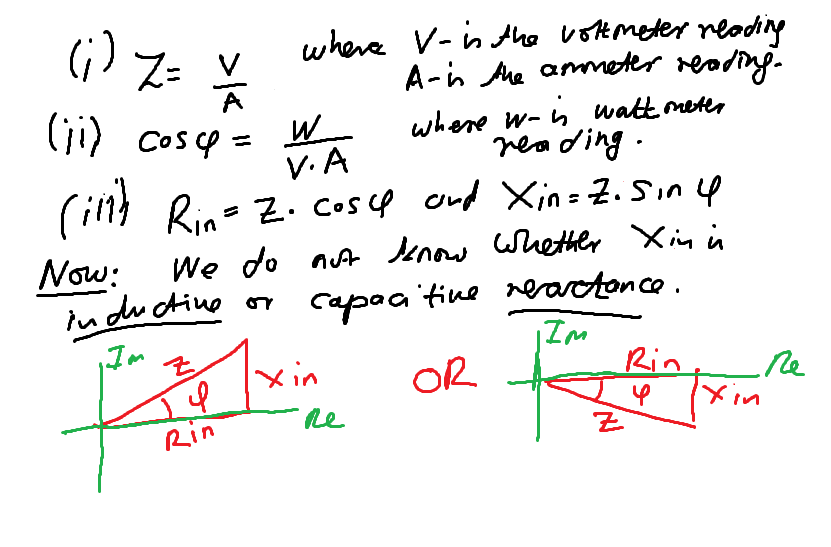 (i) Z = V/A where V- is the voltmeter reading
A- is the ammeter reading.
(ii) cos φ = W/(V·A) where W- is wattmeter
reading.
(iii) Rin = Z· cos φ and Xin = Z. Sin φ
Now: We do not know whether Xin is
inductive or capacitive reactance.
Im Z φ Xin Rin Re
OR
Im Rin Re φ Xin Z